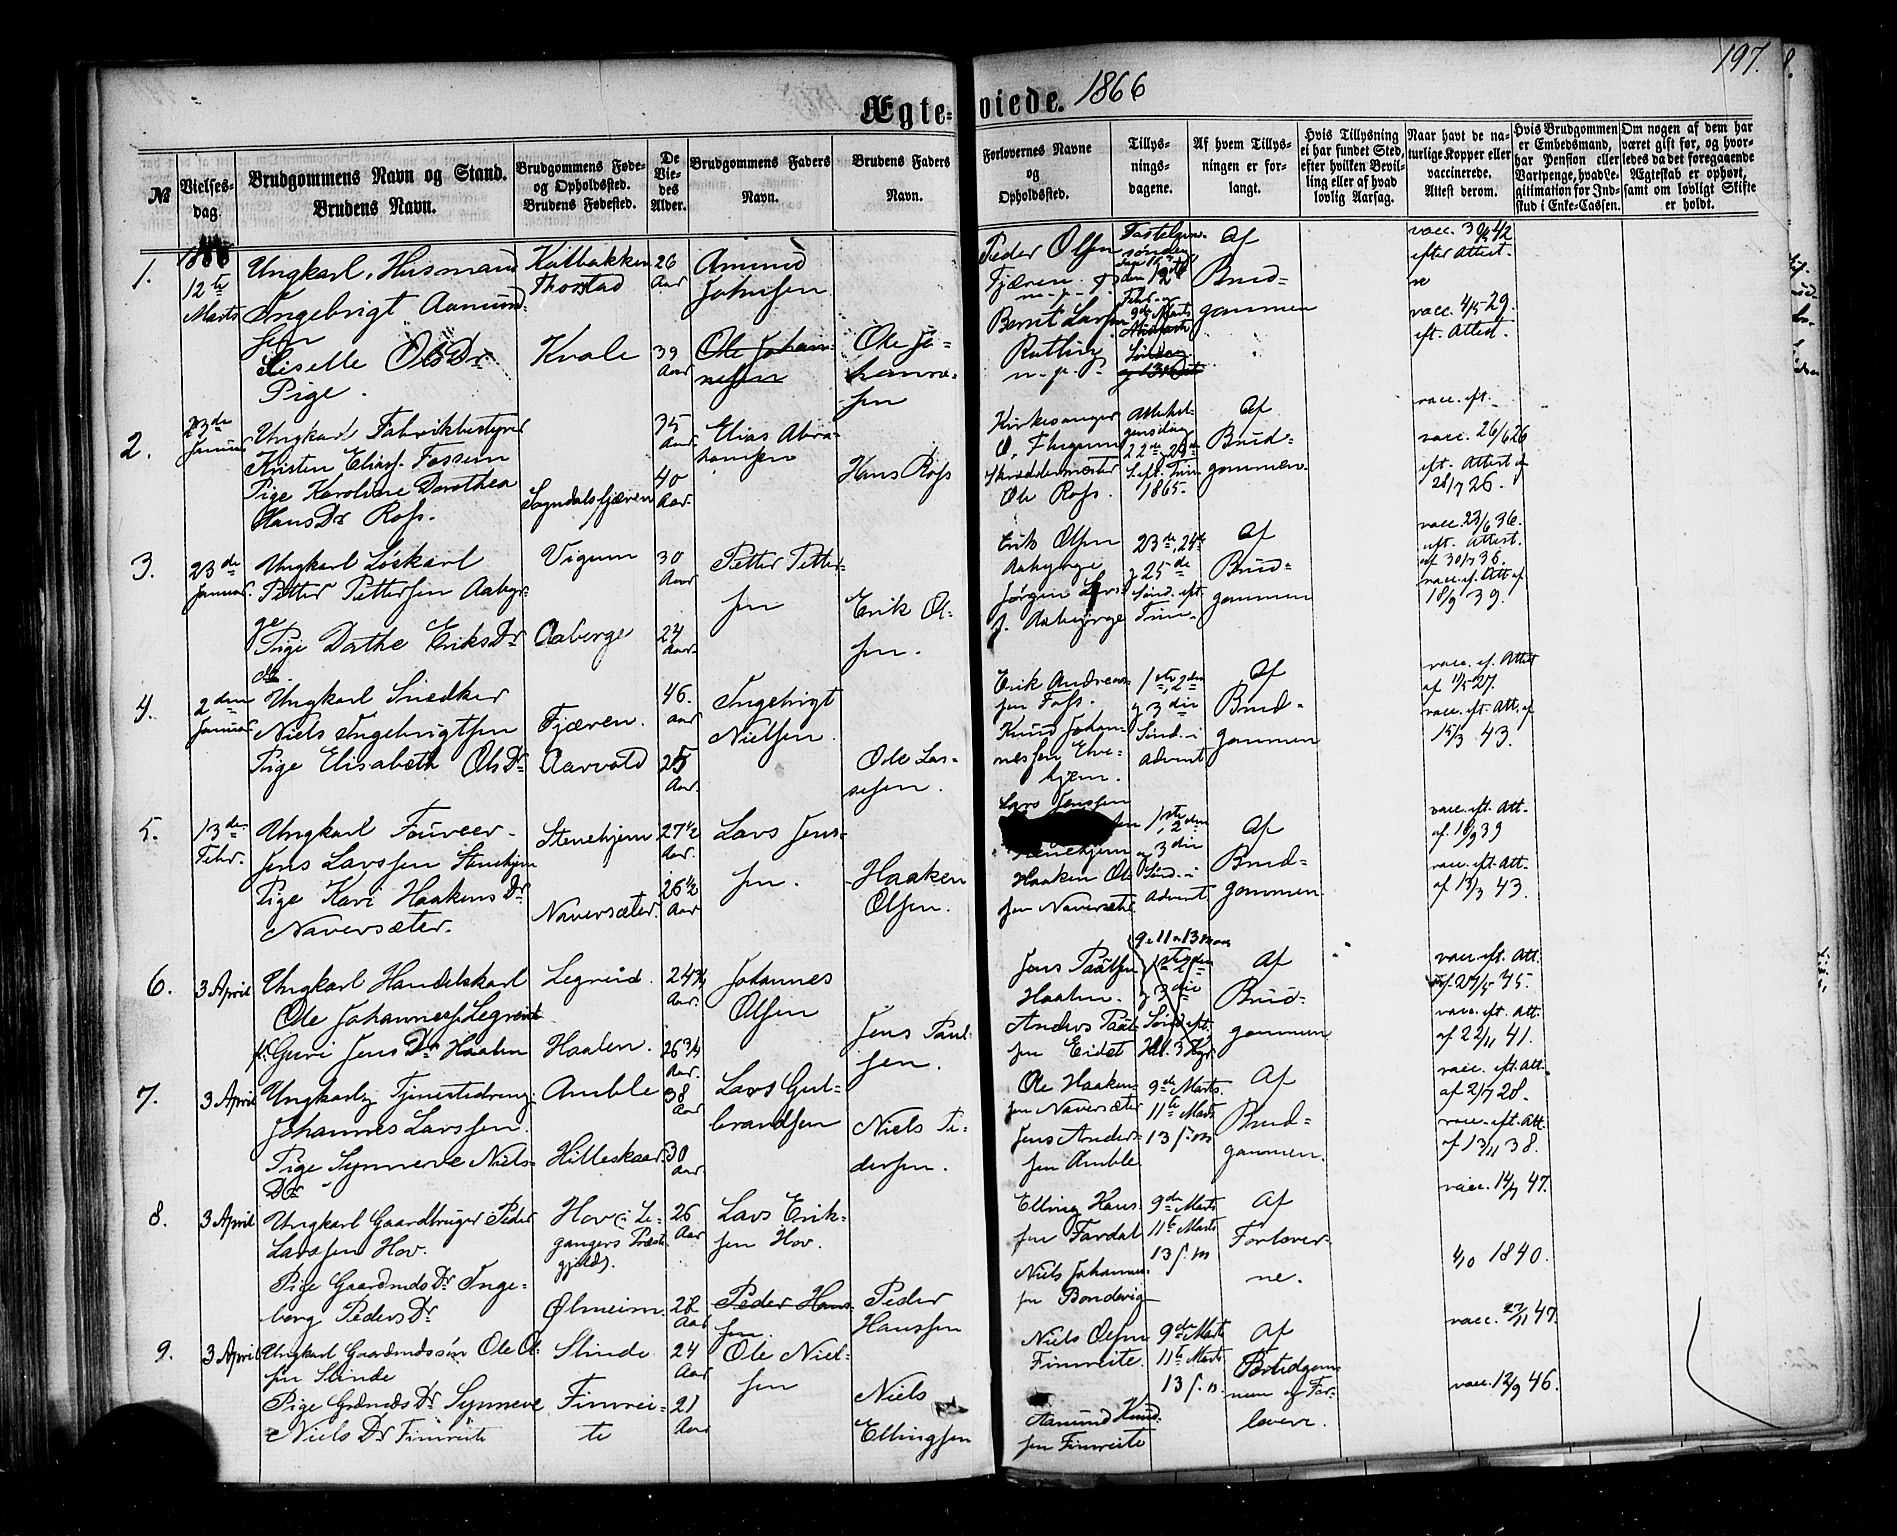 197.
8.
Ægteviede. 1866
№
Vielsesdag.
Brudgommens Navn og Stand.
Brudens Navn.
Brudgommens Føde-
og Opholdssted.
Brudens Fødested.
De
Vie-
des
Alder.
Brudgommens Faders
Navn.
Brudens Faders
Navn.
Forlovernes Navne
og
Opholdssted.
Tillys-
nings-
dagene.
Af hvem Tillys-
ningen er for-
langt.
Hvis Tillysning
ei har fundet Sted,
efter hvilken Bevil-
ling eller af hvad
lovlig Aarsag.
Naar havt de na-
turlige Kopper eller
vaccinerede.
Attest derom.
Hvis Brudgommen
er Embedsmand,
har Pension eller
Vartpenge, hvad Le-
gitimation for Ind-
skud i Enke-Cassen.
Om nogen af dem har
været gift før, og hvor-
ledes da det foregaaende
Ægteskab er ophørt,
samt om lovligt Skifte
er holdt.
1.
12te
Marts
Ungkarl, Husmand
Ingebrigt Aamund-
sen
Giselle OlsDr
Pige.
Kalbakken
Thorstad
Kvale
26
Aar
39
Aar
Amund
Johnsen
Ole Johan-
nesen
Ole Jo-
hanne-
sen
Peder Olsen
Fjæren
Bernt Larsen
Af
Brud-
gommen
efter Attest
vacc. 4/5 29.
eft. Attest.
2.
23de
Januar
Ungkarl Fabrikbestyrer
Kristen Eliass. Fossum
Pige Karoline Dorothea
HansDr Ross.
Sogndalsfjæren
35
Aar
40
Aar.
Elias Abra-
hamsen
Hans Ross
Kirkesanger
Skræddermester
Ole Ross.
22de, 23de
S. eft. Trin
1865.
Af
Brud-
gommen.
vacc. eft.
vacc. 26/6 26
eft. Attest af
28/7 26.
3.
23de
Januar.
Ungkarl Løskarl
Petter Pettersen Aaber-
ge
Pige Dorthe EriksDr
do.
Vigum
Aaberge
30
Aar
24
Aar.
Petter Petter-
sen
Erik Ol-
sen.
Erik Olsen
Aabyrge
Jørgen Lars-
s. Aabyrge
23de, 24de
g 25de
Sønd. eft.
Trin.
Af
Brud-
gommen
vacc. 23/6 36.
eft. Attest.
af 30/7 36.
vacc. ef. Att af
18/9 39.
4.
2den
Januar
Ungkarl Snedker
Niels Ingebrigtsen
Pige Elisabeth OlsDr
Fjæren.
Aarvold
46.
aar
25
Aar.
Ingebrigt
Nielsen
Ole Las-
sesen.
Erik Andreas-
sen Foss.
Knud Johan-
nessen Elve-
hjem.
1ste, 2den
g 3die
Sønd. i
Advent
Af
Brud-
gommen
vacc. ef. Attest
af 11/5 27.
vacc. eft. Att. af
15/3 43.
5.
13de
Febr.
Ungkarl Foureer
Jens Larssen Stenehjem
Pige Kari HaakensDr
Naversæter.
Stenehjem
Naversæter.
27½
Aar.
26½
Aar
Lars Jens-
sen.
Haaken
Olsen.
Lars Jenssen
Stenehjem
Haaken Ol-
sen Naversæter
1ste, 2den
og 3die
Sønd. i
Advent
Af
Brud-
gommen
vacc. eft. Att.
af 18/9 39
vacc. eft. Att.
af 13/3 43.
6.
3 April
Ungkarl Handelskarl
Ole Johanness. Legreid
P. Guri JensDr Haalen
Legreid.
Haalen.
24¾
Aar.
26¾
Aar.
Johannes
Olsen
Jens Paul-
sen.
Jens Paalsen
Haalen.
Anders Paal-
sen Eidet
9 11 13 Mars
g 3die
Sønd. eft.
Hel. 3 Kgr.
Af
Brud-
gommen
vacc. eft. Att.
af 27/5 45.
vacc. eft. Att.
af 22/11 41.
7.
3 April
Ungkarl Tjenestedreng
Johannes Larssen.
Pige Synneve Niels-
Dr
Amble
Hilleskaar
38
Aar
30
aar
Lars Gul-
brandsen
Niels Pe-
dersen.
Ole Haaken-
sen Naversæter
Jens Anders-
sen Amble
9de Marts
11te Marts
13 s. m
Af
Brud-
gommen.
vacc. eft. Att.
af 2/7 28.
vacc. eft. Att.
af 13/11 38.
8.
3 April
Ungkarl Gaardbruger Peder
Larssen Hov.
Pige GaardmdsDr Inge-
berg PedersDr
Hov i Le-
gangers Præste
gjeld.
Ølmeim
26
Aar
28
Aar
Lars Erik-
sen Hov.
Peder Hans-
sen.
Peder
Hanssen
Elling Hans-
sen Fardal
Niels Johannes-
sen Bondevig
9de Marts
11te Marts
13 s. m
Af
Forlover-
ne.
vacc. 14/7 47.
1/10 1840.
9.
3 April
Ungkarl Gaardmdssøn Ole Ol-
sen Slinde
Pige GrdmdsDr Synneve
NielsDr Fimreite
Slinde
Fimrei-
te
24
Aar
21
Aar
Ole Niel-
sen
Niels
Ellingsen
Niels Olsen
Fimreite.
Aamund Knud-
sen Fimreite
9de Marts
11te Marts
13 s. m.
Af
Brudgom-
men og For-
lovere.
vacc. 27/11 47.
vacc. 12/9 46.